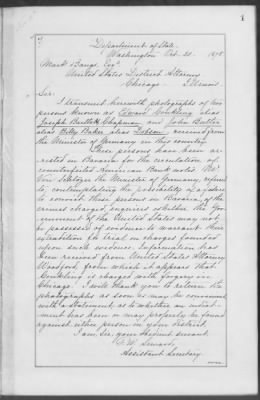 1
Department of State.
Washington Oct. 21. 1878.
Mark Bangs. Esqr.
United States District Attorney
Chicago. Illinois.
Sir:
I transmit herewith photographs of two
persons known as Edward Conkling alias
Joseph Butler Chapman and John Butler
alias Billy Baker alias Dobson, received from
the Minister of Germany in this country.
These persons have been ar-
rested in Bavaria for the circulation of
counterfeited American Bank notes. Mr.
Von Schlözer the Minister of Germany, refers
to, contemplating the possibility of a failure
to convict these persons in Bavaria, of the
crimes charged, inquires whether the Gov-
ernment of the United States may not
be possessed of evidence to warrant their
extradition for trial on charges founded
upon such evidence. Information has
been received from United States Attorney
Woodford, from which it appears that
Conkling is charged with forgery in
Chicago. I will thank you to return the
photographs as soon as may be convenient
with a statement, as to whether an indict-
ment has been or may properly be found
against either person in your district.
I am, Sir, your obedient servant.
F. W. Seward,
Assistant Secretary.